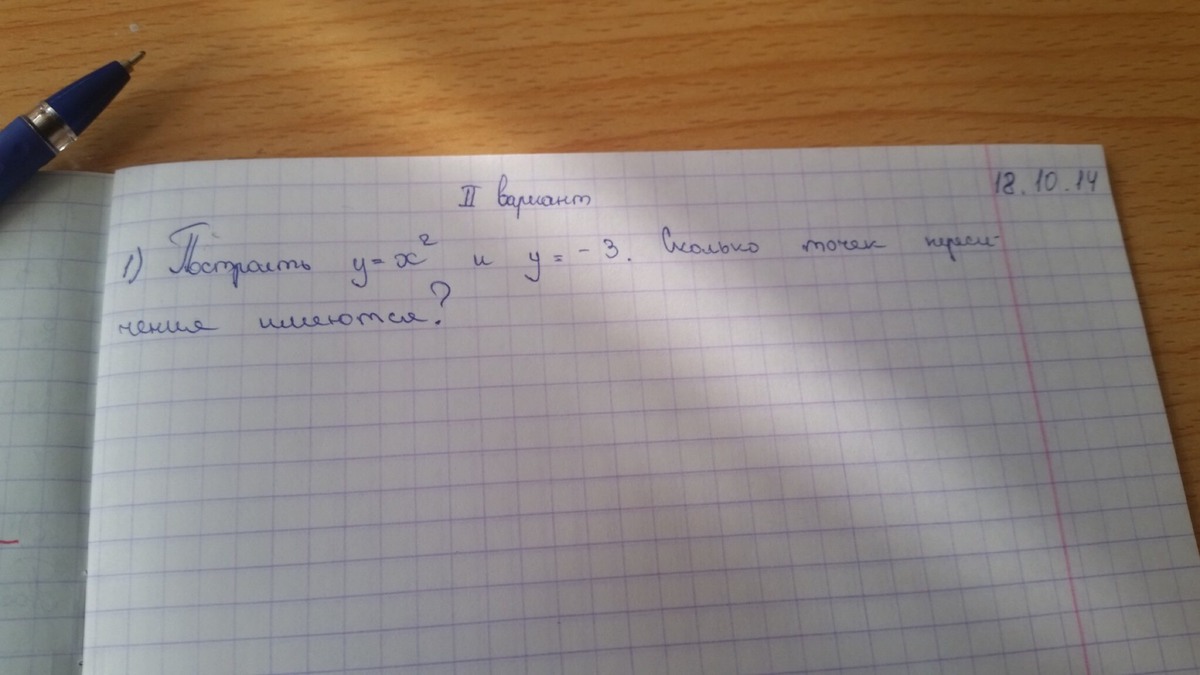 18.10.14
II вариант
1) Построить y=x² и y=-3. Сколько точек пересе-
чения имеются?